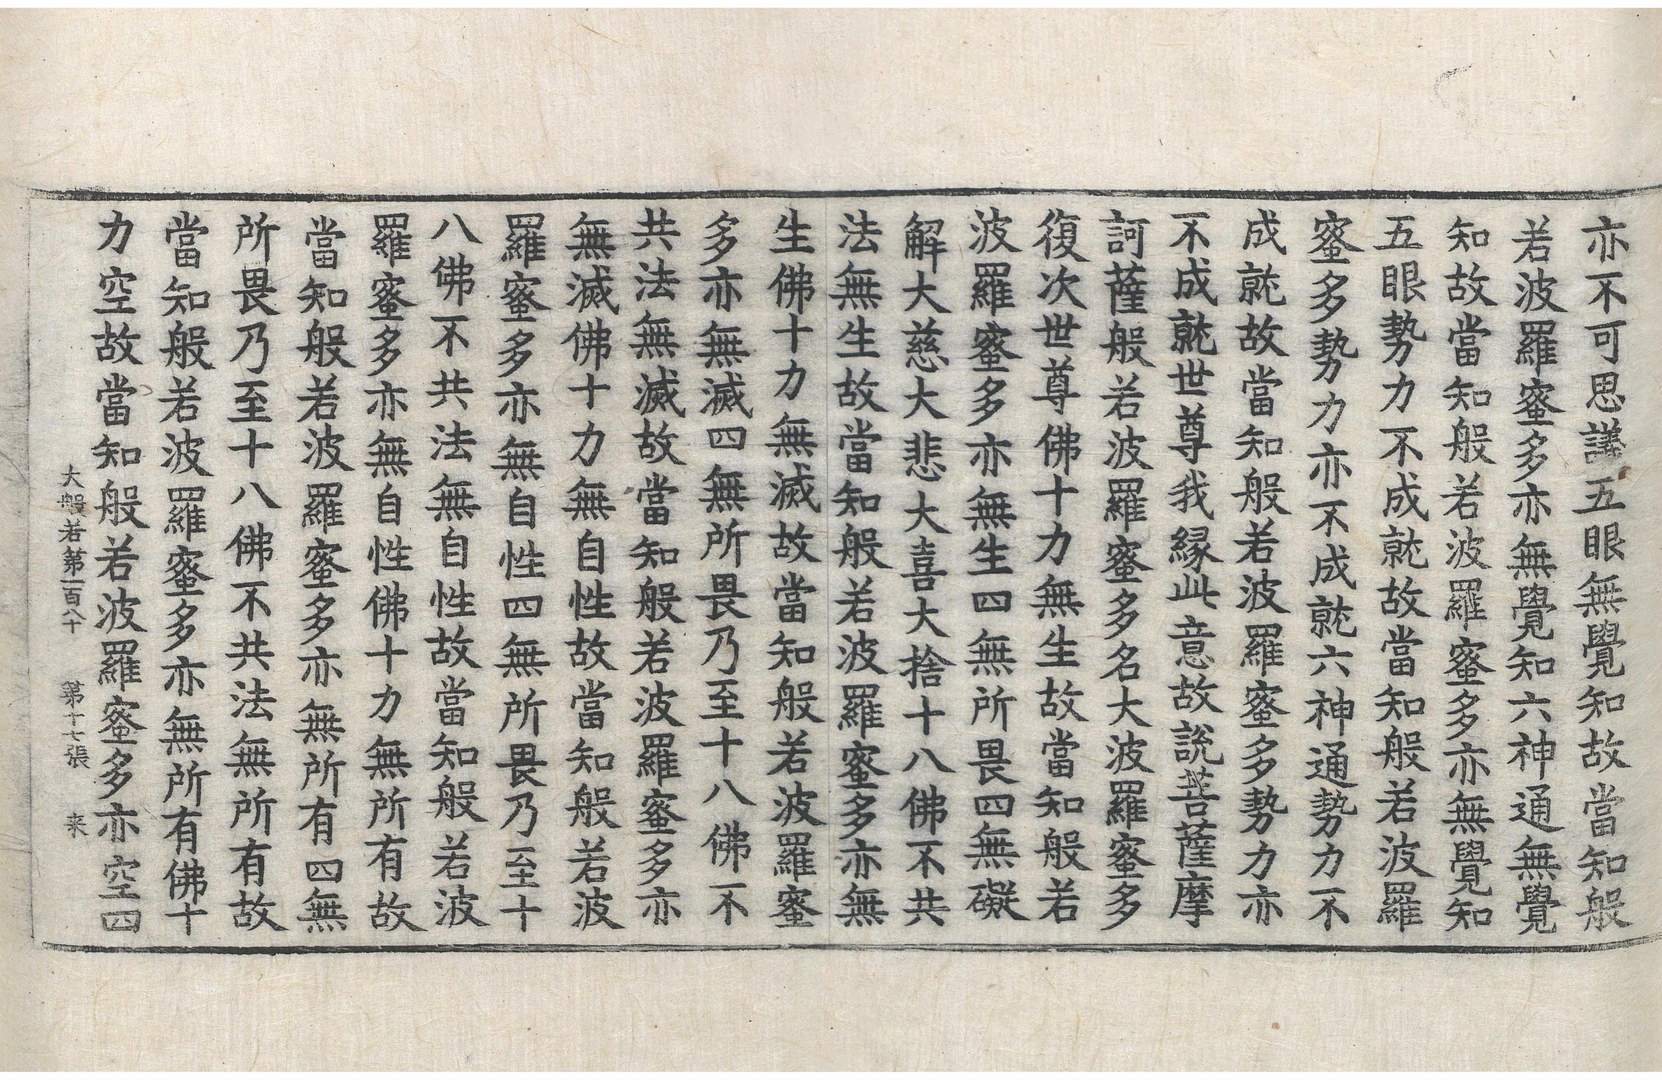 亦不可思議五眼無覺知故當知般
若波羅蜜多亦無覺知六神通無覺
知故當知般若波羅蜜多亦無覺知
五眼勢力不成就故當知般若波羅
蜜多勢力亦不成就六神通勢力不
成就故當知般若波羅蜜多勢力亦
不成就世尊我緣此意故說菩薩摩
訶薩般若波羅蜜多名大波羅蜜多
復次世尊佛十力無生故當知般若
波羅蜜多亦無生四無所畏四無礙
解大慈大悲大喜大捨十八佛不共
法無生故當知般若波羅蜜多亦無
生佛十力無滅故當知般若波羅蜜
多亦無滅四無所畏乃至十八佛不
共法無滅故當知般若波羅蜜多亦
無滅佛十力無自性故當知般若波
羅蜜多亦無自性四無所畏乃至十
八佛不共法無自性故當知般若波
羅蜜多亦無自性佛十力無所有故
當知般若波羅蜜多亦無所有四無
所畏乃至十八佛不共法無所有故
當知般若波羅蜜多亦無所有佛十
力空故當知般若波羅蜜多亦空四
大般若第一百八十 第十七張 来